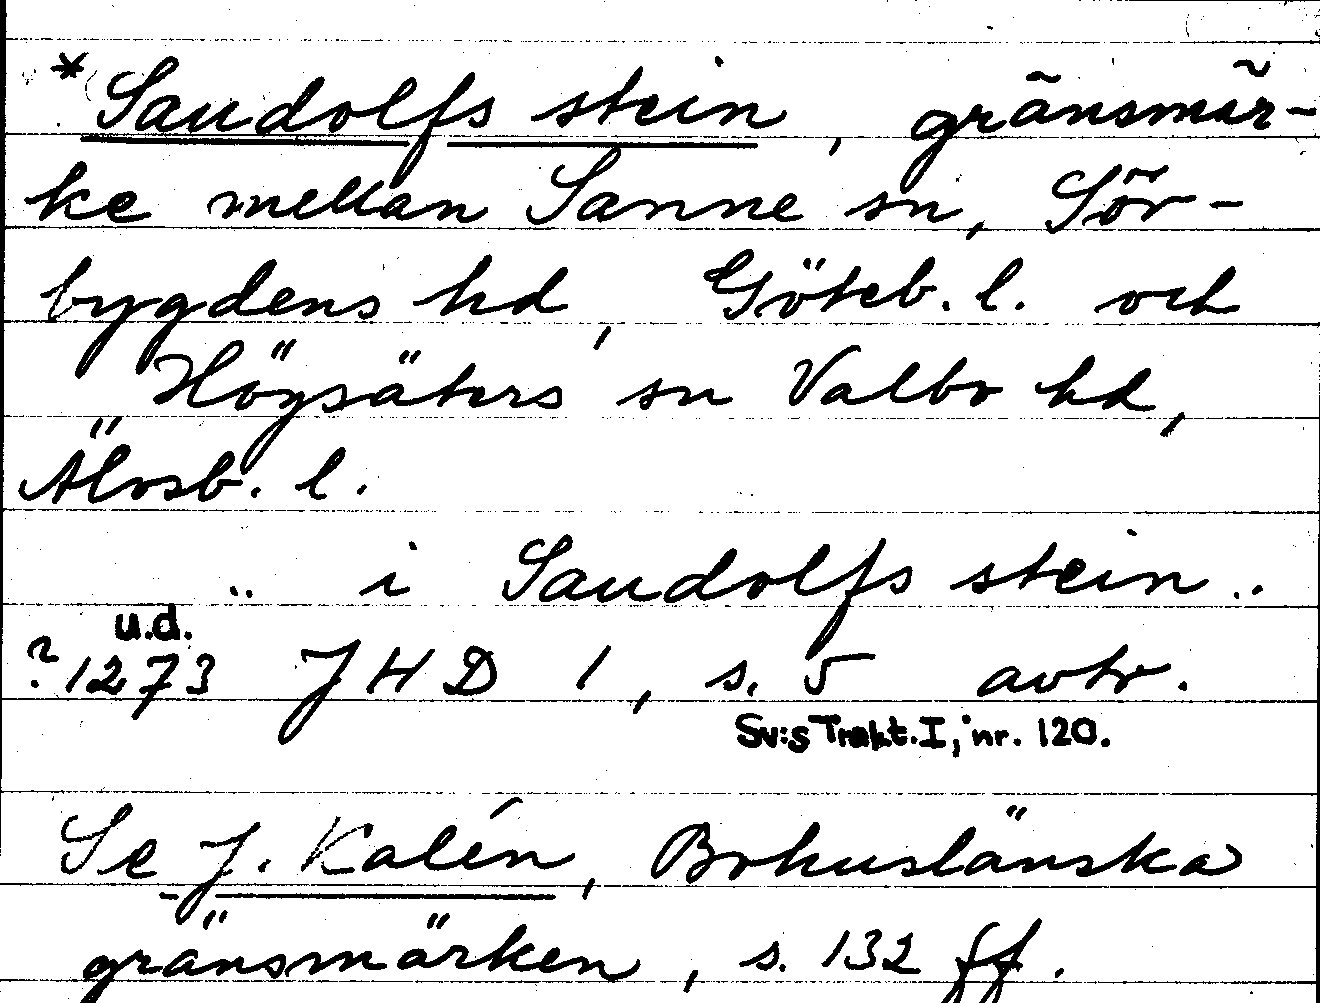 * Saudolfs stein, gränsmär-
ke mellan Sanne sn, Sör-
bygdens hd, Göteb. l. och
Högsäters sn Valbo hd,
Älvsb. l.
.. i Saudolfs stein ..
u.d.
? 1273 JHD 1, s. 5 avtr.
Sv:s Trakt. I, nr. 120.
Se J. Kalén, Bohuslänska
gränsmärken, s. 132 ff.